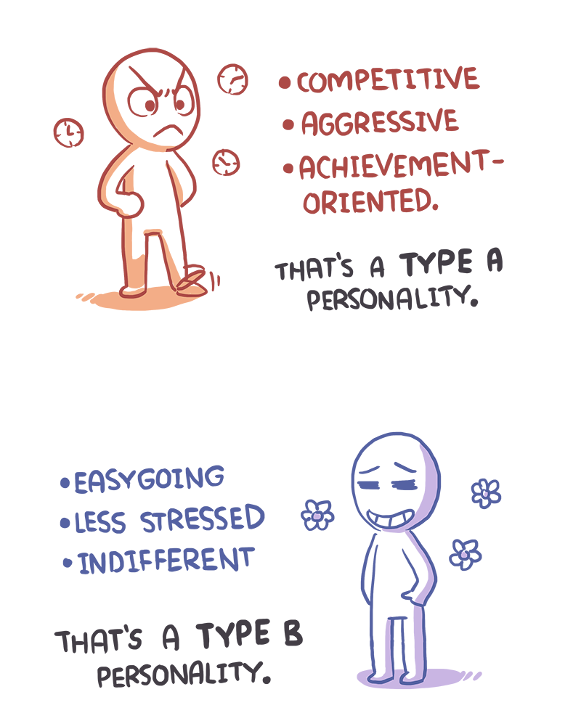 • COMPETITIVE
• AGGRESSIVE
• ACHIEVEMENT-
ORIENTED.
THAT'S A TYPE A
PERSONALITY.
• EASYGOING
• LESS STRESSED
• INDIFFERENT
THAT'S A TYPE B
PERSONALITY.